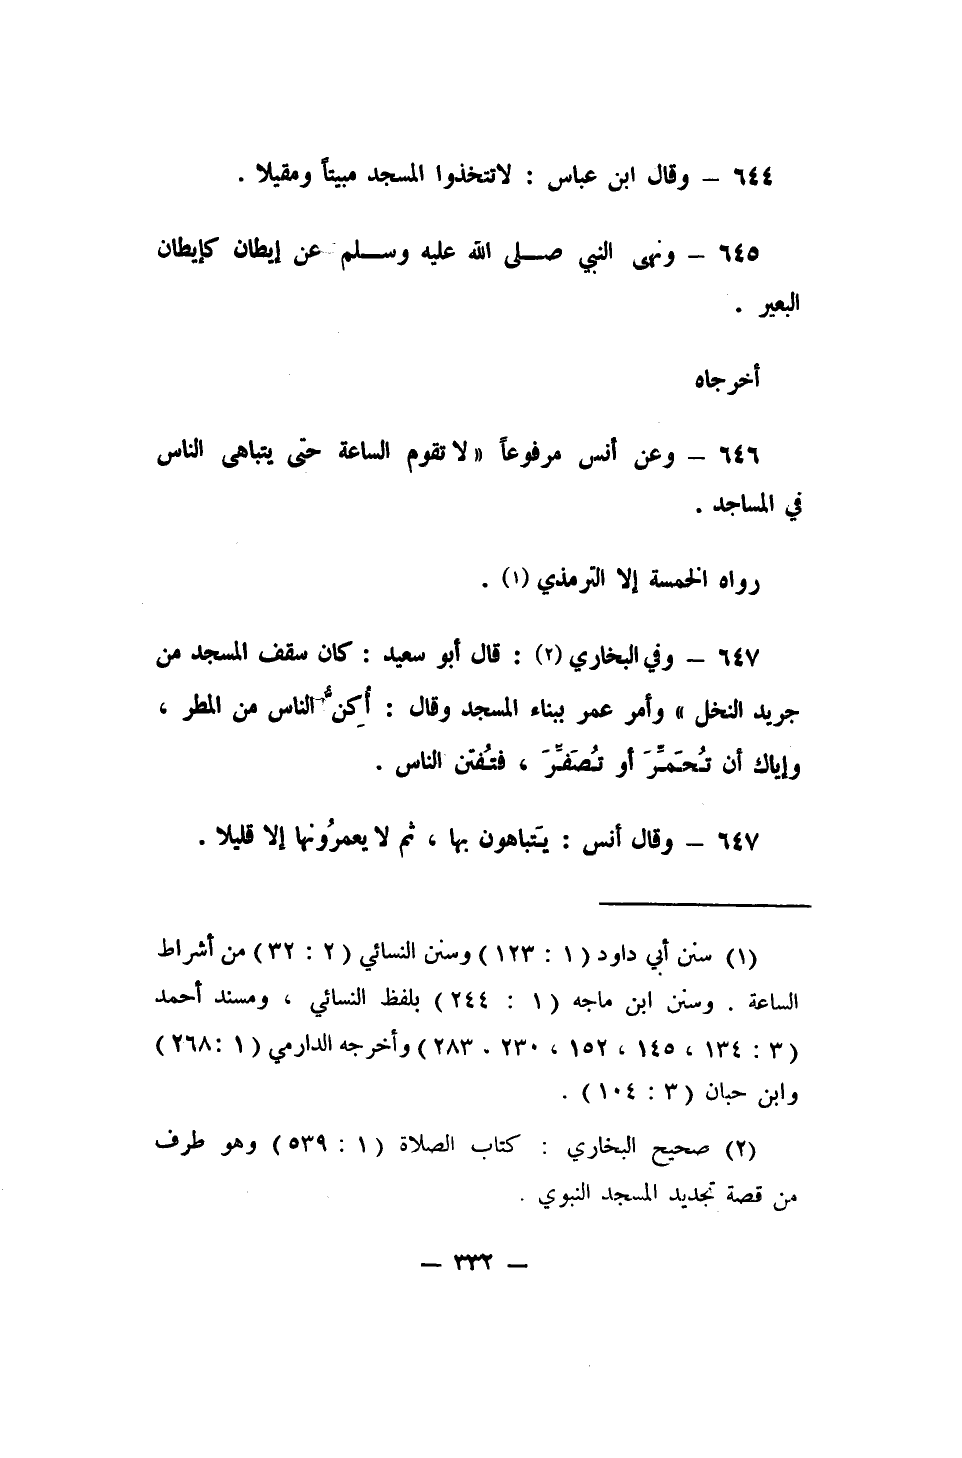 ٦٤٤ – وقال ابن عباس : لاتتخذوا المسجد مبيتاً ومقيلا .
٦٤٥ – ونهى النبي صلى الله عليه وسلم عن إيطان كإيطان
البعير .
أخرجاه
٦٤٦ – وعن أنس مرفوعاً « لا تقوم الساعة حتى يتباهى الناس
في المساجد .
رواه الخمسة إلا الترمذي (١) .
٦٤٧ – وفي البخاري (٢) : قال أبو سعيد : كان سقف المسجد من
جريد النخل » وأمر عمر ببناء المسجد وقال : أُكِنُّ الناس من المطر ،
وإياك أن تُحَمِّرَ أو تُصَفِّرَ ، فتُفتن الناس .
٦٤٧ – وقال أنس : يَتباهون بها ، ثم لا يعمرُونها إلا قليلا .
(١) سنن أبي داود ( ١ : ١٢٣ ) وسنن النسائي ( ٢ : ٣٢ ) من أشراط
الساعة . وسنن ابن ماجه ( ١ : ٢٤٤ ) بلفظ النسائي ، ومسند أحمد
( ٣ : ١٣٤ ، ١٤٥ ، ١٥٢ ، ٢٣٠ . ٢٨٣ ) وأخرجه الدارمي ( ١ : ٢٦٨ )
وابن حبان ( ٣ : ١٠٤ ) .
(٢) صحيح البخاري : كتاب الصلاة ( ١ : ٥٣٩ ) وهو طرف
من قصة تجديد المسجد النبوي .
– ٣٣٢ –